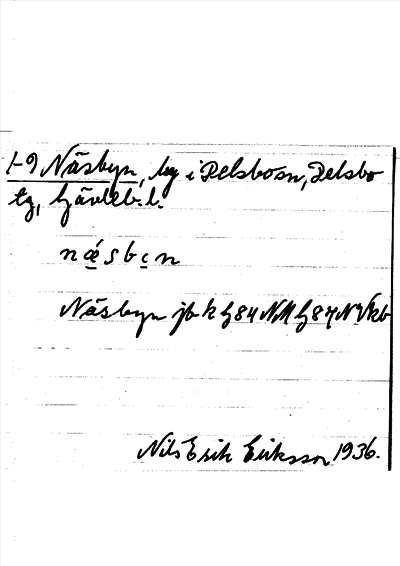 1-9 Näsbyn, by i Delsbo sn, Delsbo
tg, Gävleb. l.
næsbin
Näsbyn jb k G84 NM G84 NV kb
Nils Erik Eriksson 1936.